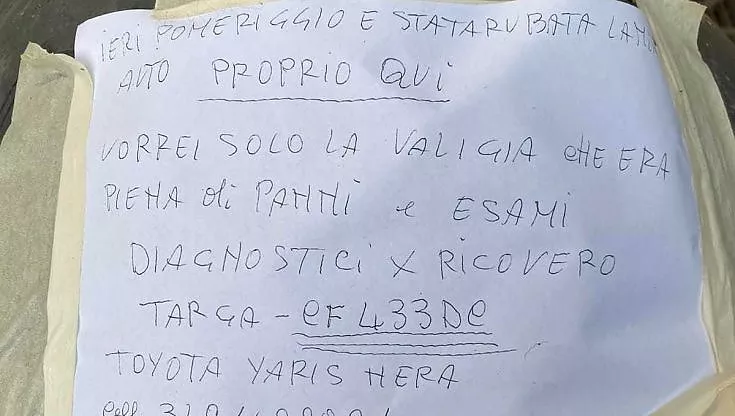 IERI POMERIGGIO E STATA RUBATA LA MIA
AUTO PROPRIO QUI
VORREI SOLO LA VALIGIA CHE ERA
PIENA di PANNI e ESAMI
DIAGNOSTICI X RICOVERO
TARGA - CF433DC
TOYOTA YARIS NERA
Cell